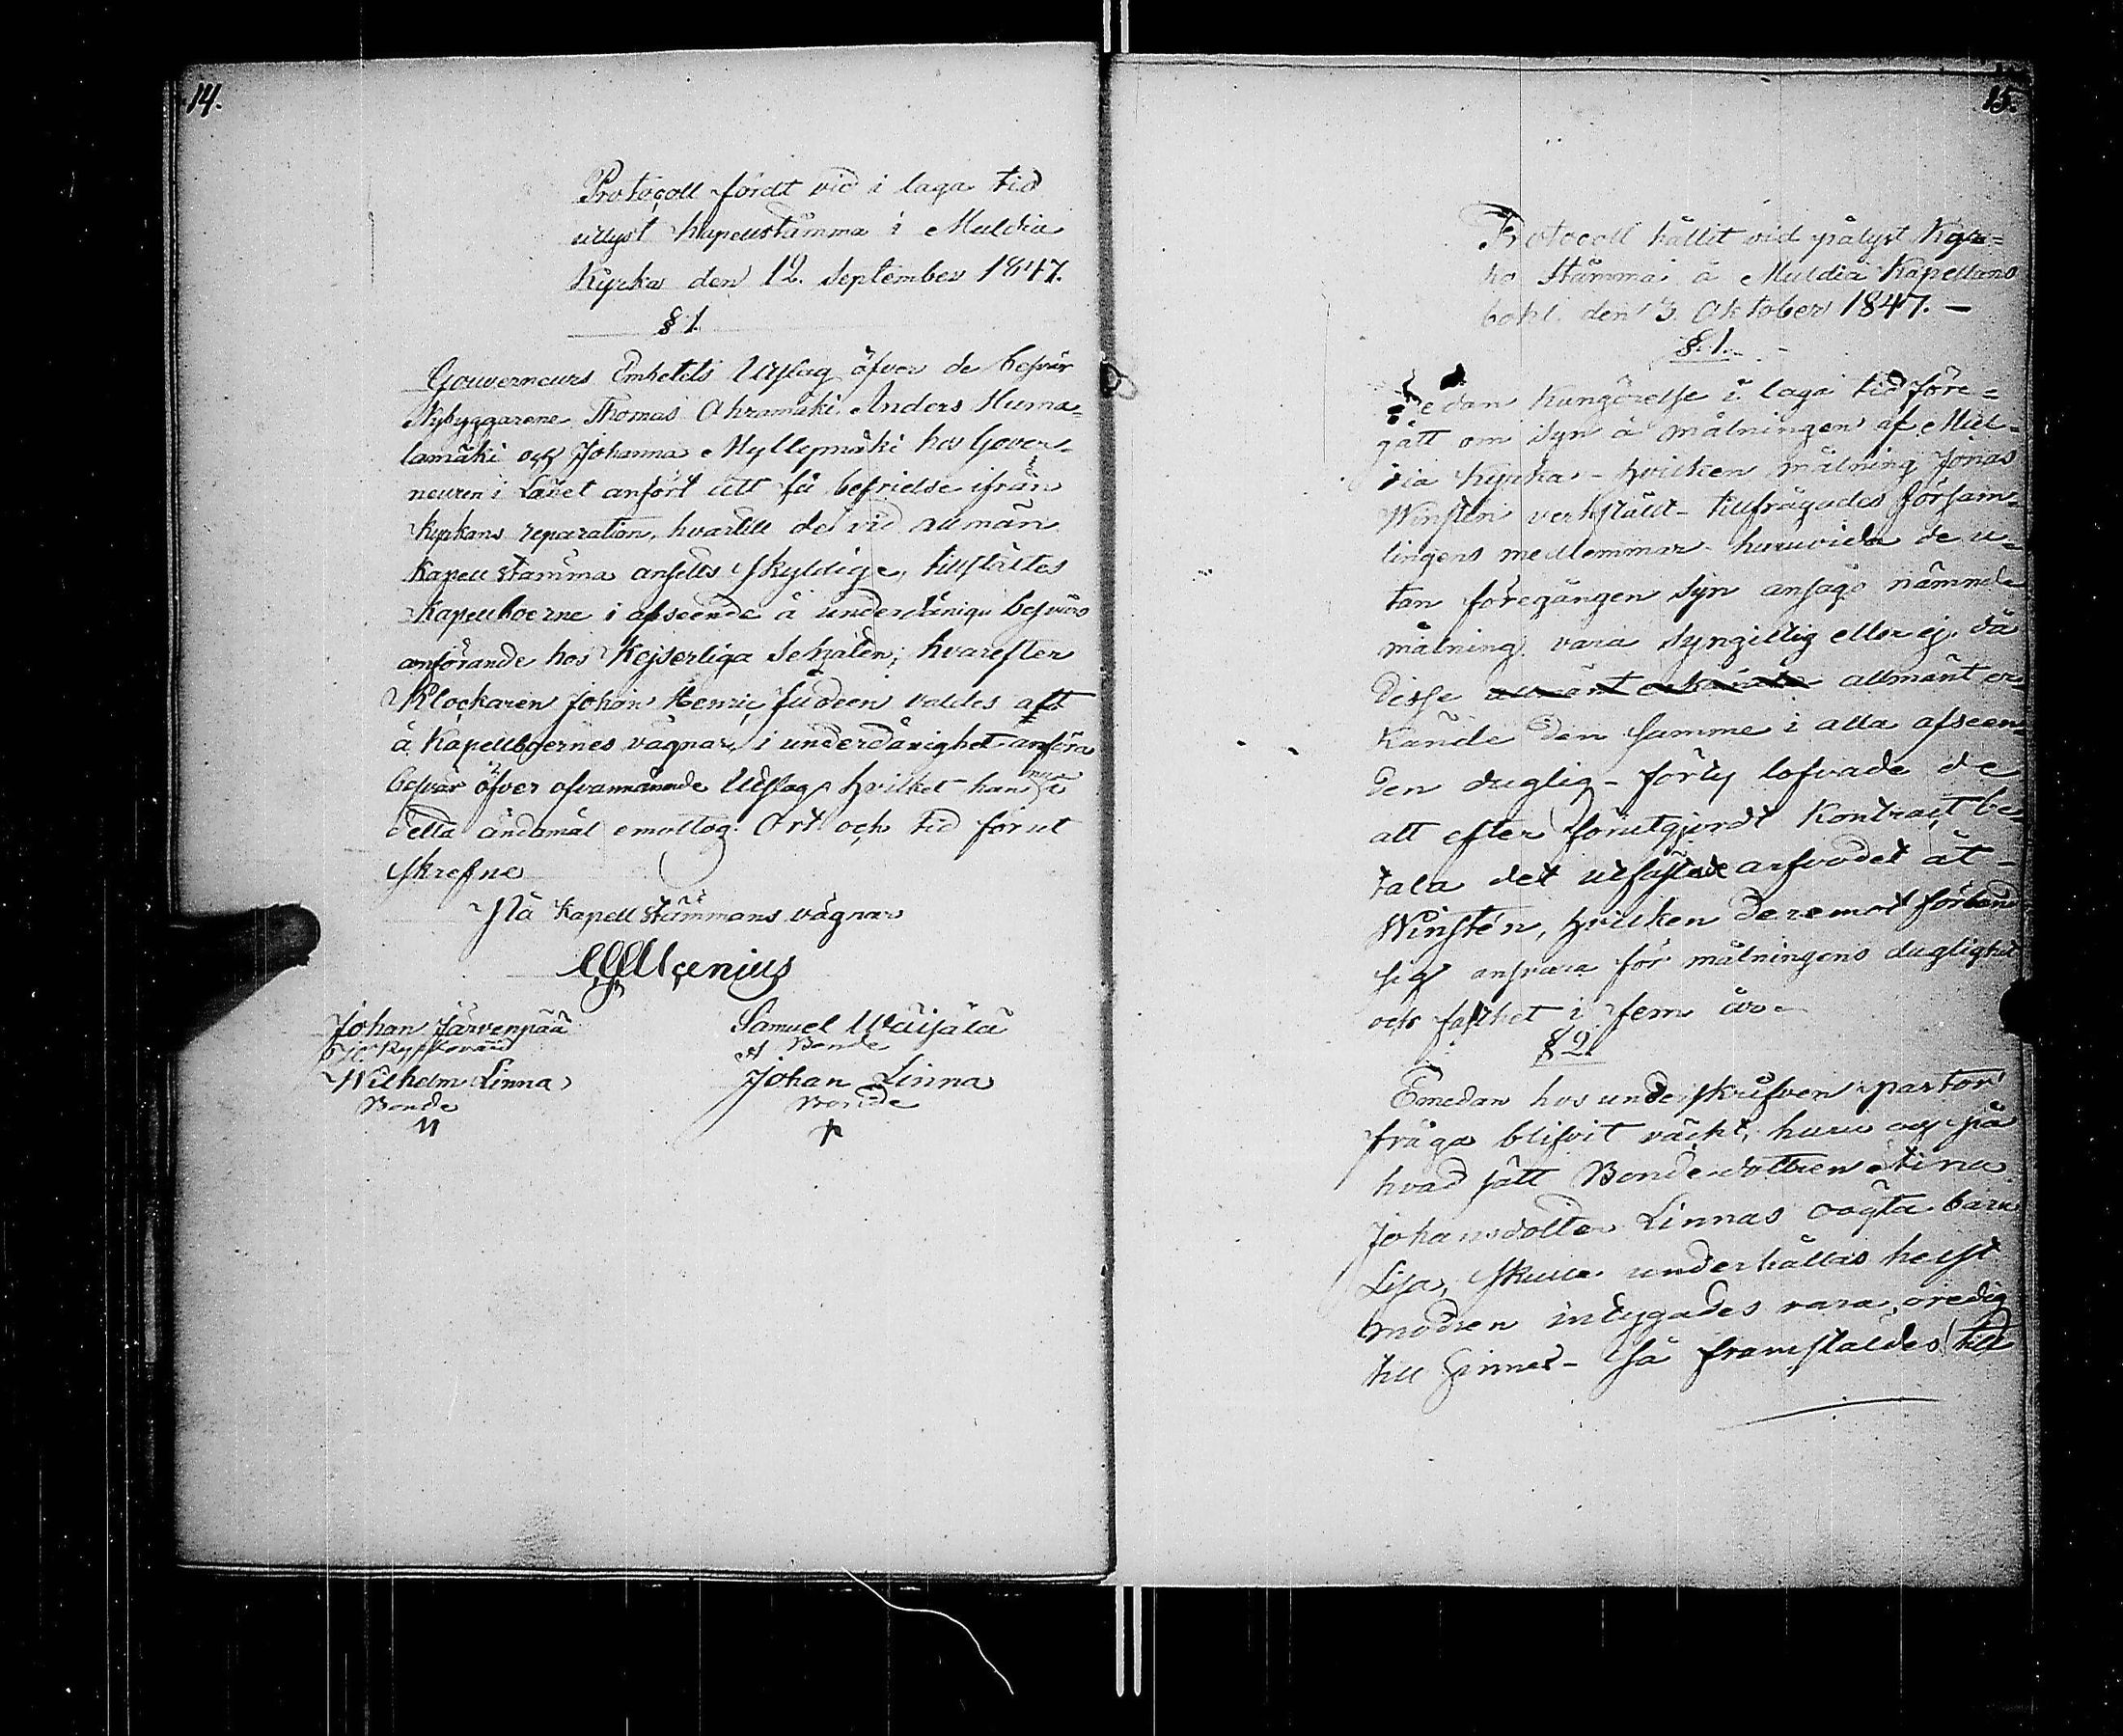 14.
Protocoll fördt vid i laga tid
utlyst Kapellstämma i Muldia
Kyrka den 12. September 1847.
§ 1.
Gouverneurs Embetets Utslag öfver de besvär
Nybyggarene Thomas Ahramäki Anders Huma-
lamäki och Johanna Myllymäki hos Gover-
neuren i Länet anfört att få befrielse ifrån
kyrkans reparation, hvartill de vid allmän
Kapell stämma ansetts skyldige, tillstältes
Kapellboerne i afseende å underdånige besvärs
anförande hos Kejserliga Senaten; hvarefter
Klockaren Johan Henric Judeen valdes att
å Kapellboernes vägnar i underdånighet anföra
besvär öfver ofvannämnde Utslag, hvilket han
detta ändamål emottog. Ort och tid förut
skrefne
På Kapell stämmans vägnar
Johan Järvenpää
Kyrkovärd
Wilhelm Linna
Bonde
Samuel Wäisälä
Bonde
Johan Linna
Bonde
15.
Protocoll hållit vid pålyst Kyr-
ko Stämma å Muldia Kapellans
bohl. den 3. Oktober 1847. —
§. 1.
Sedan Kungörelse i laga tid före-
gått om syn å målningen af Mul-
dia Kyrka - hvilken målning Jonas
Winstén verkstält - tillfrågades Försam-
lingens medlemmar huruvida de u-
tan föregången syn ansågo nämnde
målning vara syngillig eller ej. då
desse allmänt er-
kände den samme i alla afseen-
den duglig - förty lofvade de
att efter förutgjordt Kontract be-
tala det utfästade arfvodet åt
Winstén, hvilken deremot förband
sig ansvara för målningens duglighet
och fasthet i fem år -
§ 2.
Emedan hos underskrifven pastor
fråga blifvit väckt, huru och på
hvad sätt Bondedottren Stina
Johansdotter Linnas oägta barn
Lisa, skulle underhållas helst
modren intygades vara oredig
till sinnes - Så framstäldes till